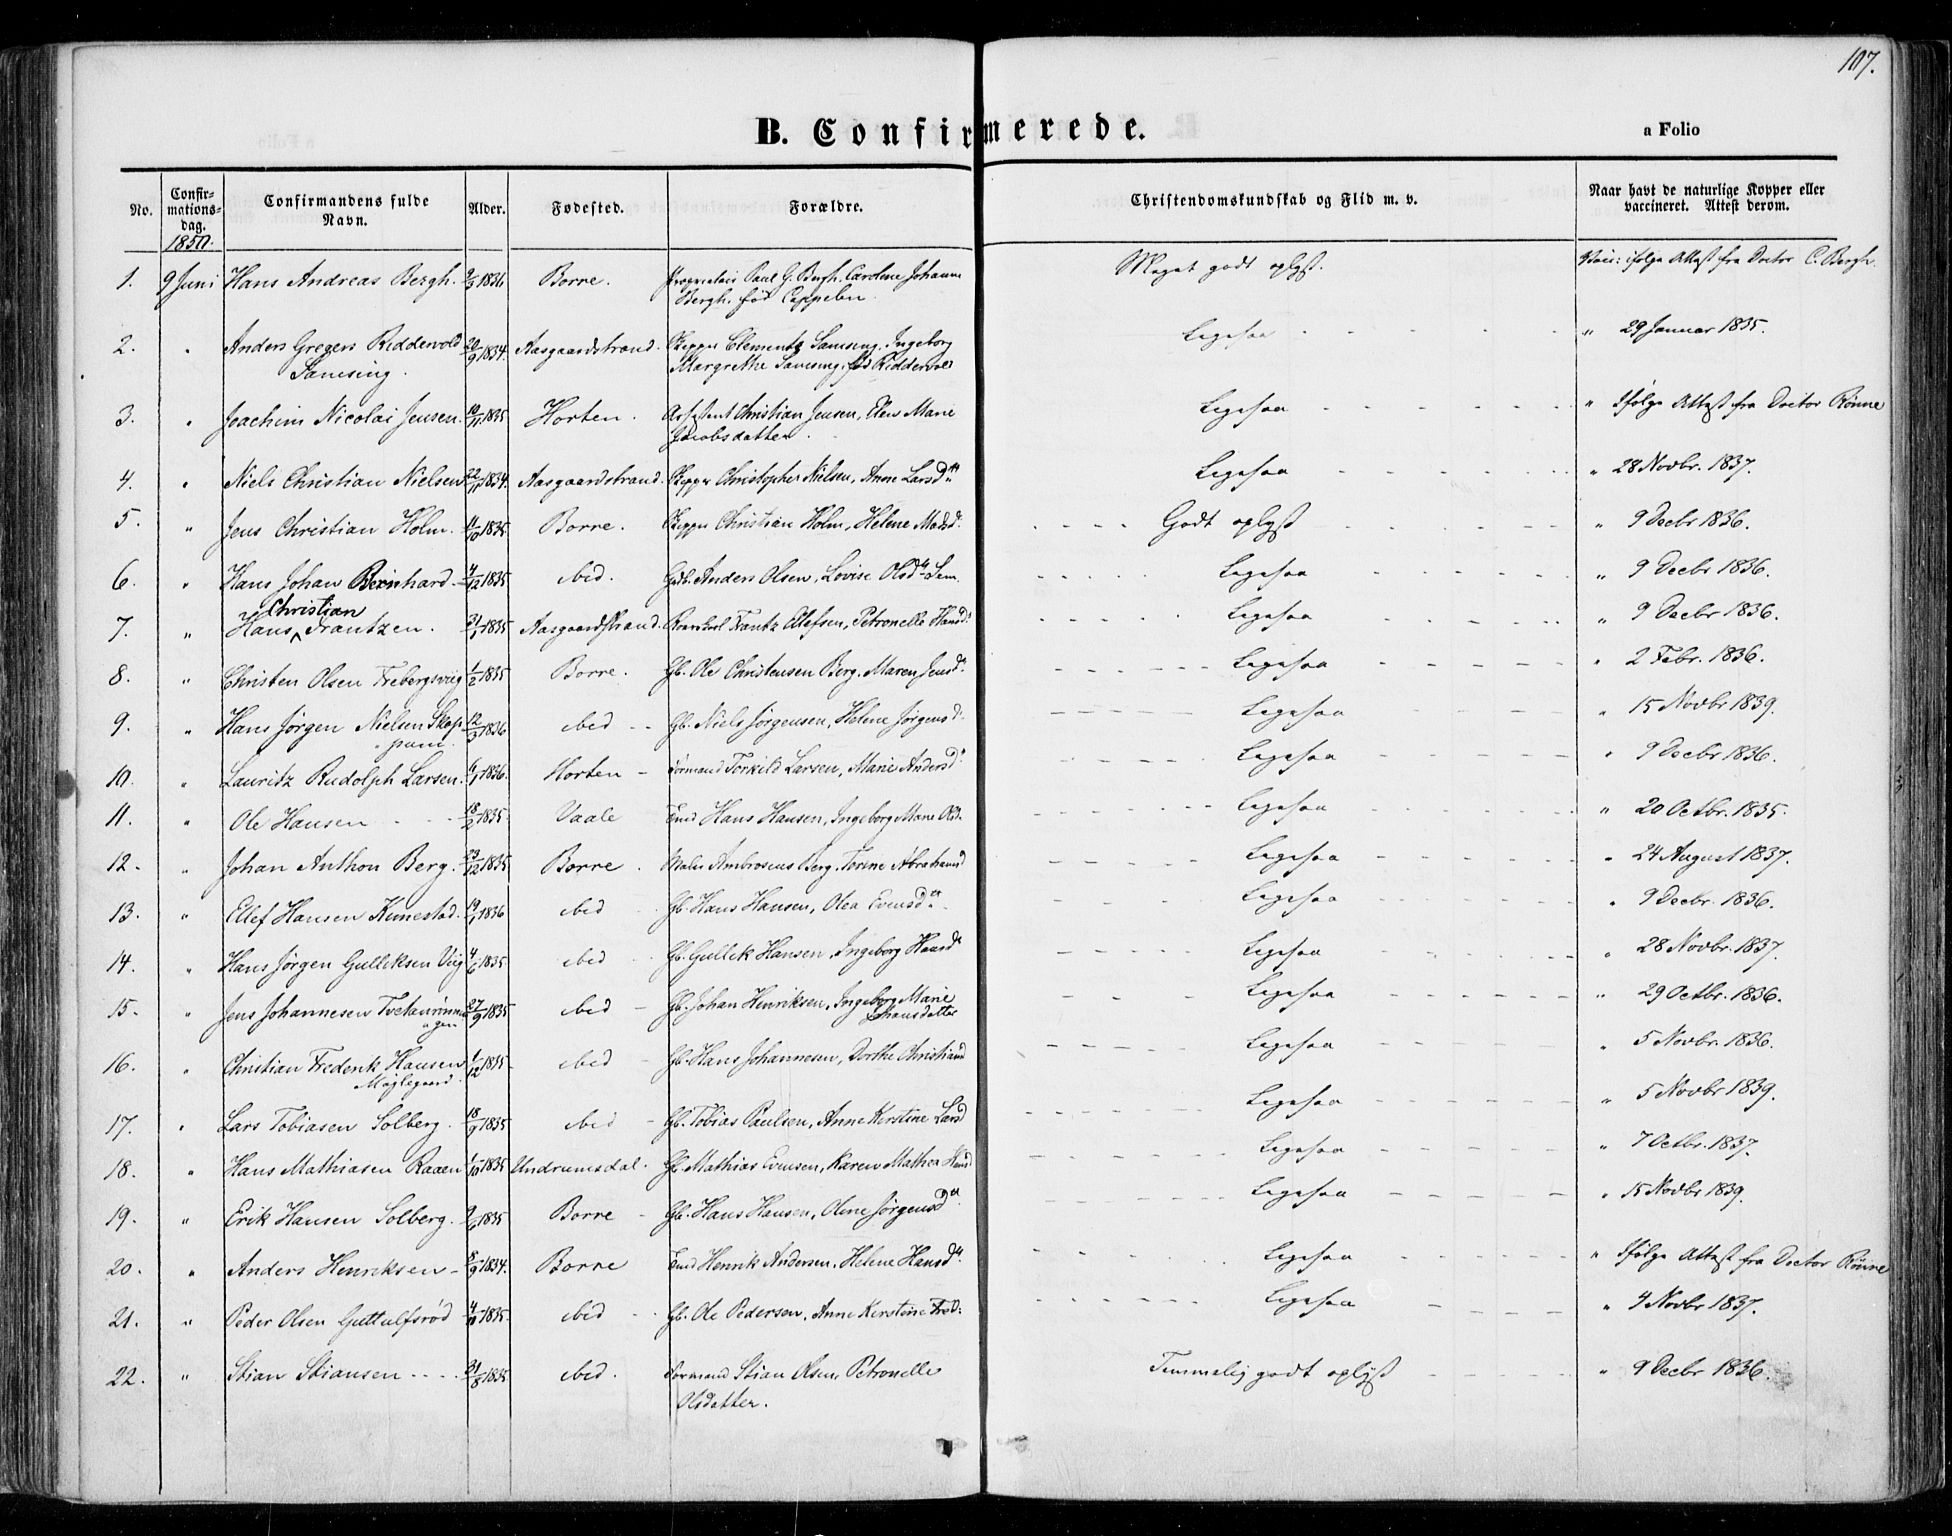 107.
B. Confirmerede.
a Folio
No.
Confir-
mations-
dag.
1850.
Confirmandens fulde
Navn.
Alder.
Fødested.
Forældre.
Christendomskundskab og Flid m. v.
Naar havt de naturlige Kopper eller
vaccineret. Attest derom.
1. 9 Juni Hans Andreas Bergh. 1836 Borre. Proprietair Paul G. Bergh, Caroline Johanne Meget godt oplyst. Vacc: ifølge Attest fra Doctor C. Bergh.
Bergh, fød Cappelen
2. " Anders Gregers Riddervold 20/9 1834. Aasgaardstrand. Skipper Clementz Samsing, Ingeborg Ligesaa " 29 Januar 1835.
Samsing. Margrethe Samsing, fød Riddervold
3. " Joachim Nicolai Jensen. 1835 Horten. Christian Jensen, Elen Marie Ligesaa " Ifølge Attest fra Doctor Rønne
Jacobsdatter.
4. " Niels Christian Nielsen 22/11 1834. Aasgaardstrand. Skipper Christopher Nielsen, Anne Larsd Ligesaa " 28 Novbr. 1837.
5. " Jens Christian Holm. 1835 Borre. Skipper Christian Holm, Helene Madsd. Godt oplyst " 9 Decbr 1836.
6. " Hans Johan Bernhard 4/12 1835 ibid. Gdb. Anders Olsen, Lovise Olsd. Sem. Ligesaa " 9 Decbr 1836.
Christian
7. " Hans Frantzen. 21/1 1835 Aasgaardstrand. Frantz Olefsen, Petronelle Hansd. Ligesaa " 9 Decbr 1836.
8. " Christen Olsen Frebergsviig 1/2 1835 Borre. Gb. Ole Christensen Berg, Maren Jensd. Ligesaa " 2 Febr. 1836.
9. " Hans Jørgen Nielsen Skop- 12/3 1836 ibid Gb. Niels Jørgensen, Helene Jørgensd. Ligesaa " 15 Novbr 1839.
pum.
10. " Lauritz Rudolph Larsen. 6/1 1836. Horten Tørmand Torkild Larsen, Marie Andersd. Ligesaa " 9 Decbr 1836.
11. " Ole Hansen 18/2 1835. Vaale Hans Hansen, Ingeborg Marie Olsd. Ligesaa " 20 Octbr. 1835.
12. " Johan Anthon Berg. 23/12 1835 Borre. Maler Ambrosius Berg, Torine Abrahamsd Ligesaa " 24 August 1837.
13. " Ellef Hansen Kimestad. 19/1 1836 ibid Gb. Hans Hansen, Olea Evensd. Ligesaa " 9 Decbr. 1836.
14. " Hans Jørgen Gulliksen Viig 4/6 1835 ibid Gb. Gullik Hansen, Ingeborg Hansd. Ligesaa " 28 Novbr. 1837.
15. " Jens Johannesen 27/9 1835 ibid Gb. Johan Henriksen, Ingeborg Marie Ligesaa " 29 Octbr. 1836.
Hansdatter
16. " Christian Frederik Hansen 1/12 1835 ibid Gb. Hans Johannesen, Dorthe Christiansd Ligesaa " 5 Novbr. 1836.
Møglegaard.
17. " Lars Tobiasen Solberg. 18/9 1835 ibid Gb. Tobias Paulsen, Anne Kerstine Larsd Ligesaa " 5 Novbr 1839.
18. " Hans Mathiasen Raaen 1/10 1835 Undrumsdal. Gb. Mathias Evensen, Karen Mathea Hansd Ligesaa " 7 Octbr. 1837.
19. " Erik Hansen Solberg. 1835 Borre Gb. Hans Hansen, Oline Jørgensd. Ligesaa " 15 Novbr 1839.
20. " Anders Henriksen 8/9 1834. Borre Henrik Andersen, Helene Hansd. Ligesaa " Ifølge Attest fra Doctor Rønne
21. " Peder Olsen Guttulfsrød 1835. ibid Gb. Ole Pedersen, Anne Kerstine Ligesaa " 4 Novbr 1837.
22. " Stian Stiansen 31/8 1835 ibid. Tørmand Stian Olsen, Petronelle Temmelig godt oplyst " 9 Decbr 1836.
Olsdatter.